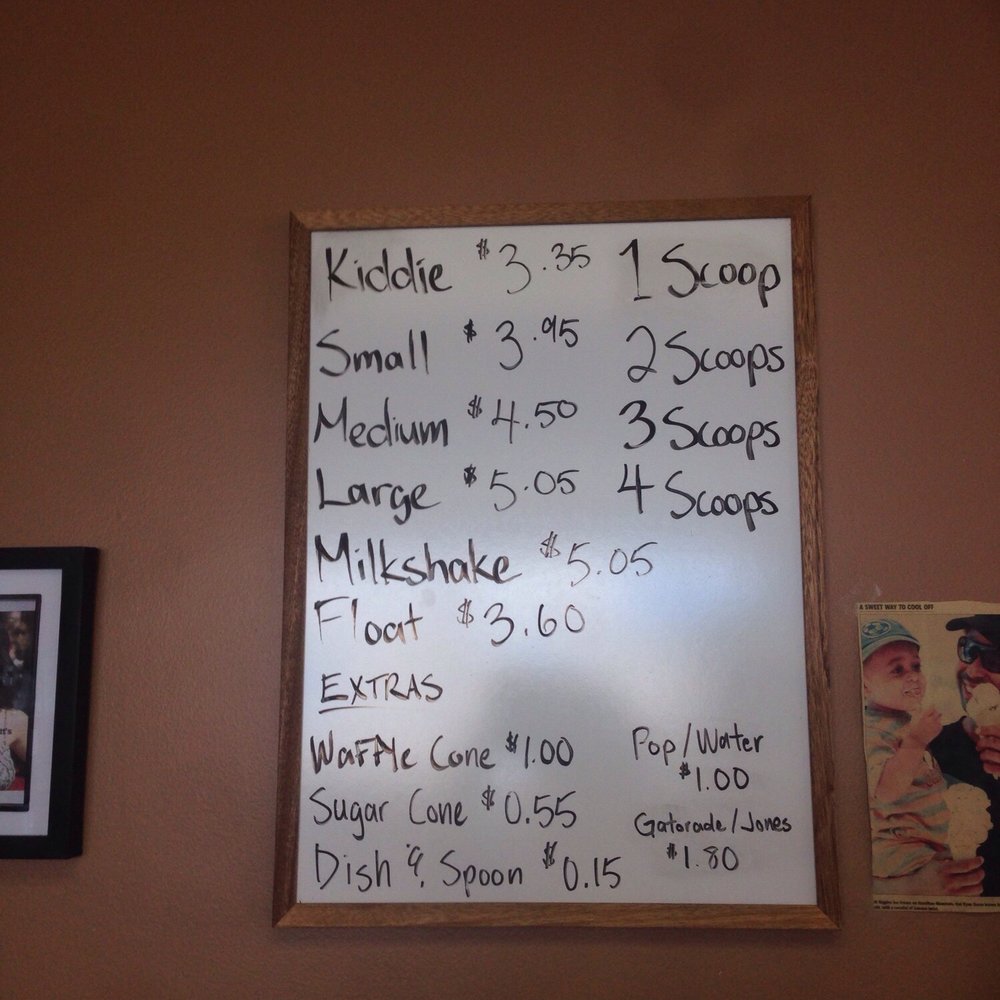 Kiddie $3.35 1 Scoop
Small $3.95 2 Scoops
Medium $4.50 3 Scoops
Large $5.05 4 Scoops
Milkshake $5.05
Float $3.60
EXTRAS
Waffle Cone $1.00
Sugar Cone $0.55
Dish & Spoon $0.15
Pop/Water
$1.00
Gatorade/Jones
$1.80
A SWEET WAY TO COOL OFF